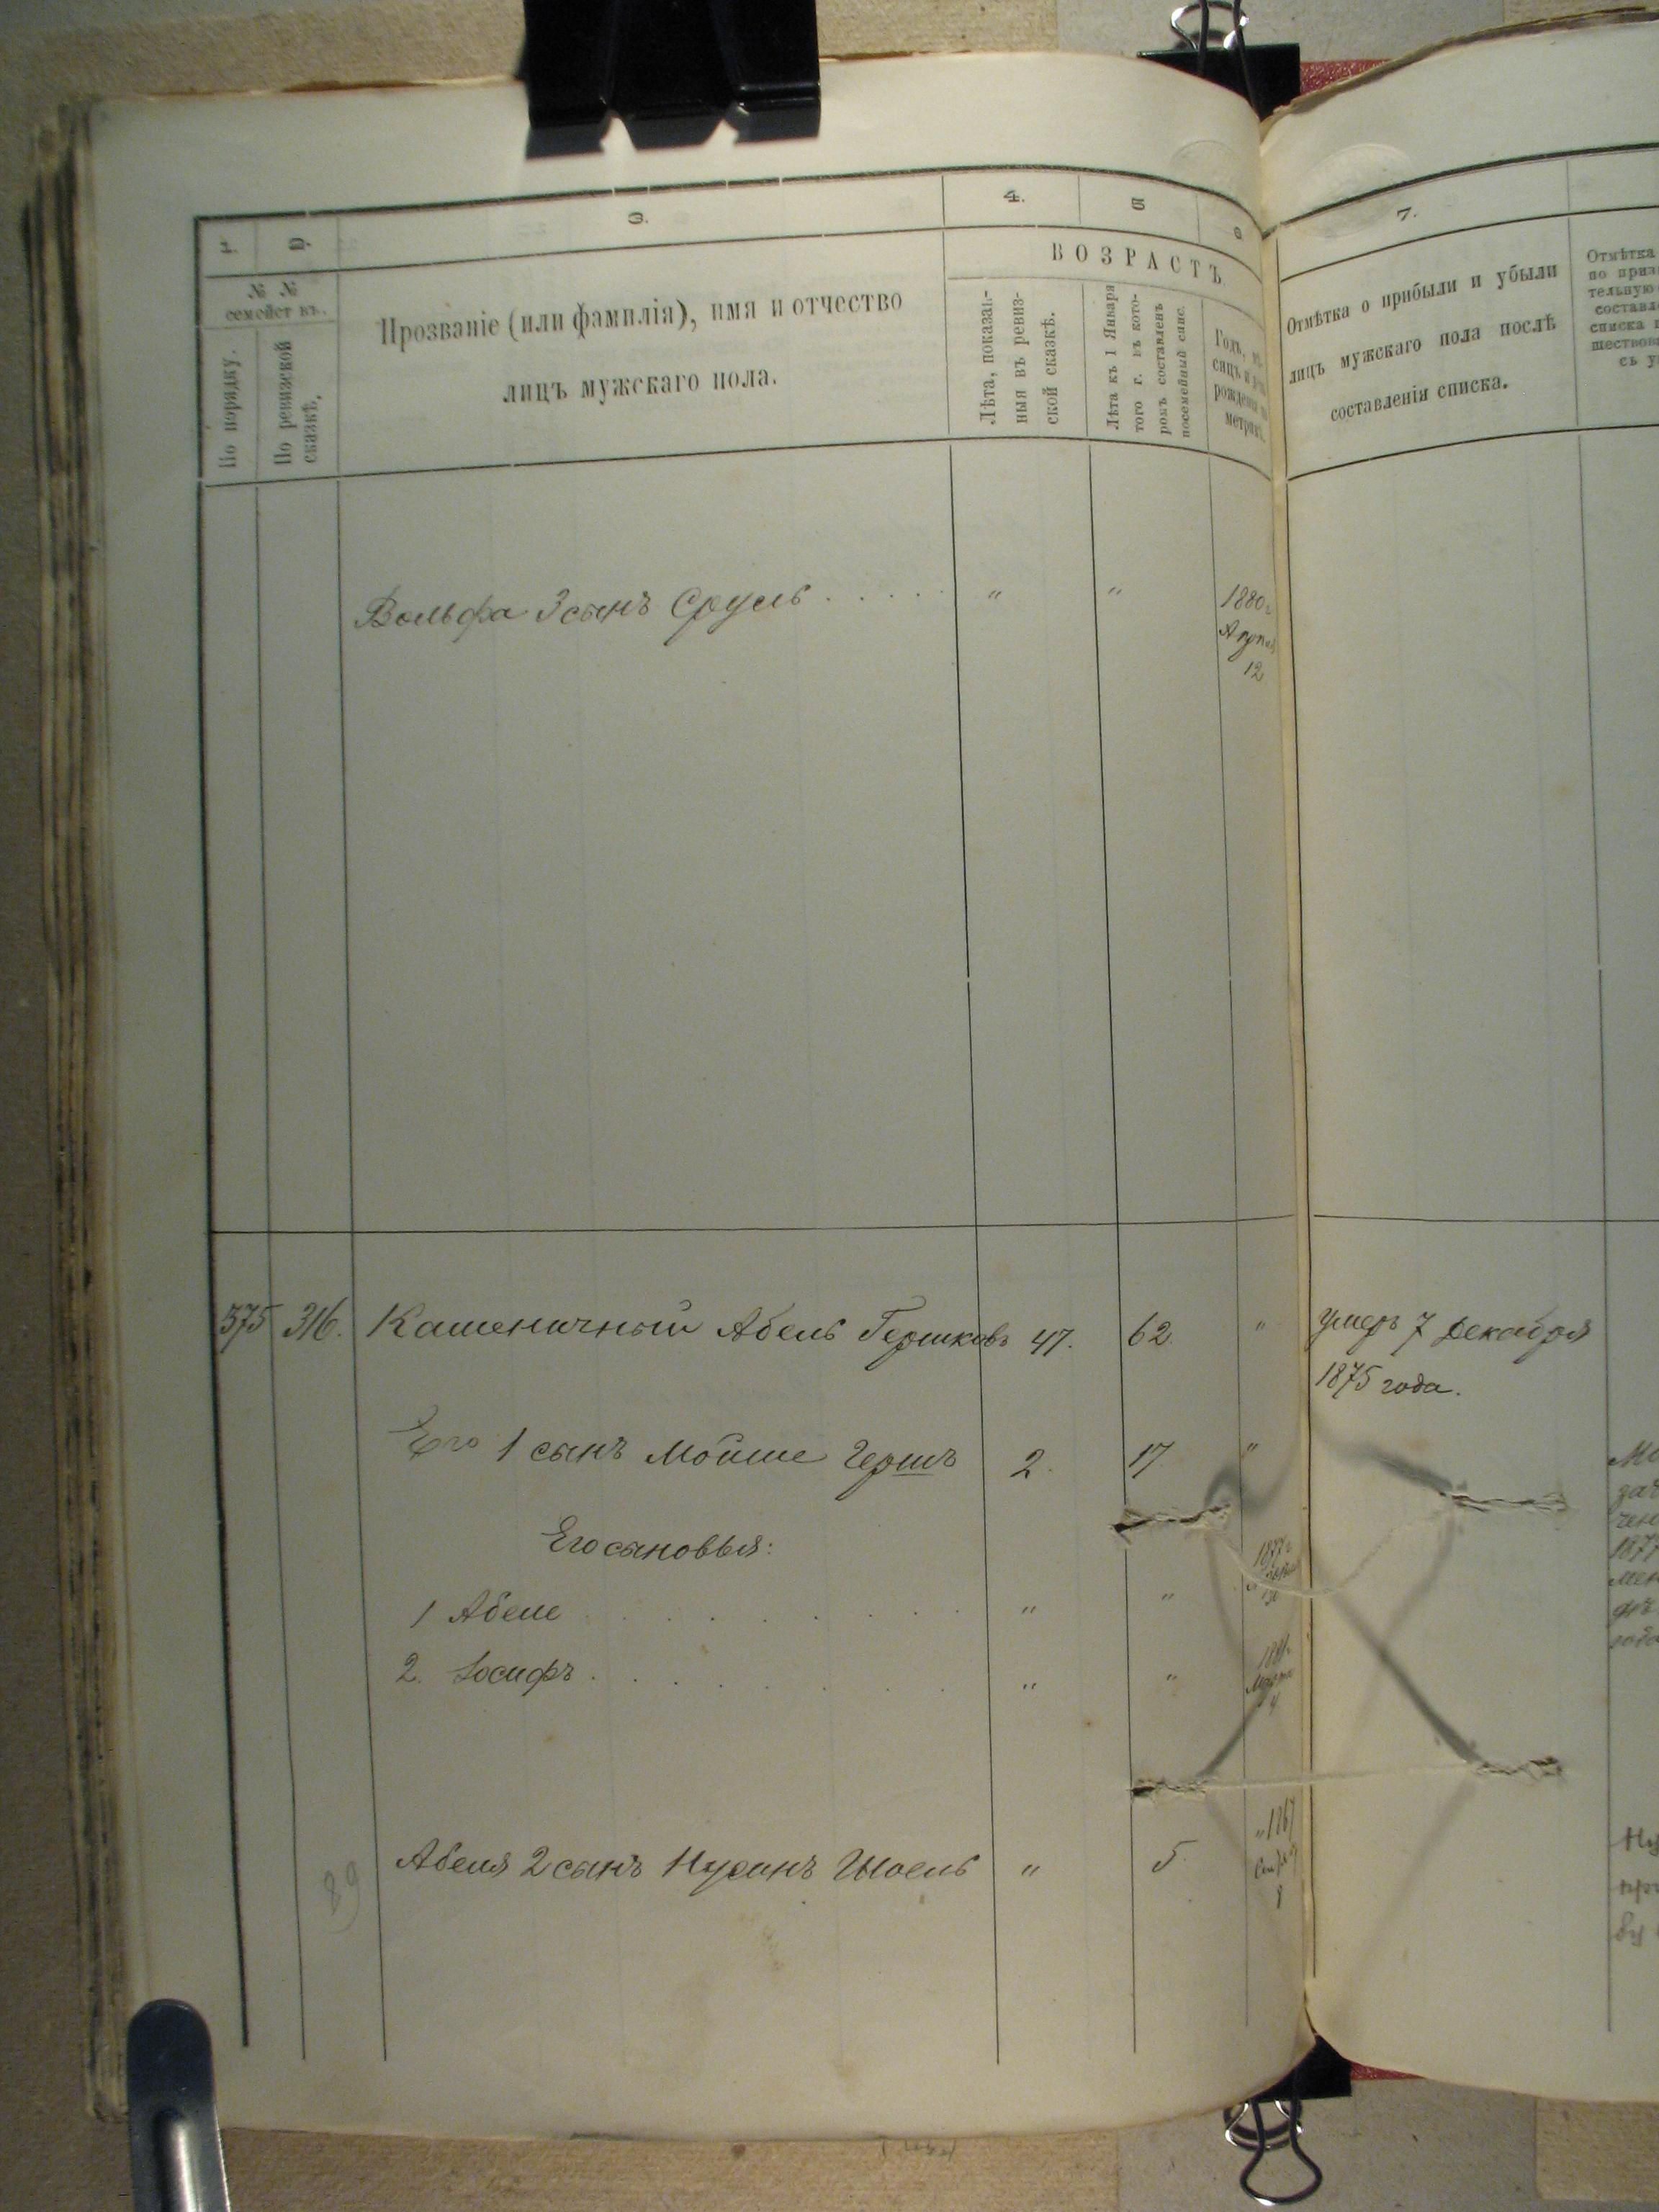 1. 2. 3. 4. 5 6 7.
№ №
семействъ.
По порядку.
По ревизской
сказкѣ.
Прозваніе (или фамилія), имя и отчество
лицъ мужскаго пола.
ВОЗРАСТЪ.
Лѣта, показан-
ныя въ ревиз-
ской сказкѣ.
Лѣта къ 1 Января
того г. въ кото-
ромъ составленъ
посемейный спис.
Годъ, мѣ-
сяцъ и
рожденія
метрик.
Отмѣтка о прибыли и убыли
лицъ мужскаго пола послѣ
составленія списка.
Отмѣтка
по
тельную
составл
списка
шествов
съ у
Вольфа 3 сынъ Сруль . . . . . " " 1880 г
Апрѣля
12
575 316. Каменичный Абель Гершковъ 47. 62. " умеръ 7 Декабря
1875 года.
Его 1 сынъ Мойше Гершъ 2. 17 "
Его сыновья:
1877 г
1 Абеле . . . . . . . . " "
30
2. Іосифъ . . . . . . . . " " 1881
Марта
4
Абеля 2 сынъ Нусинъ Шоель " 5. " 1867
89